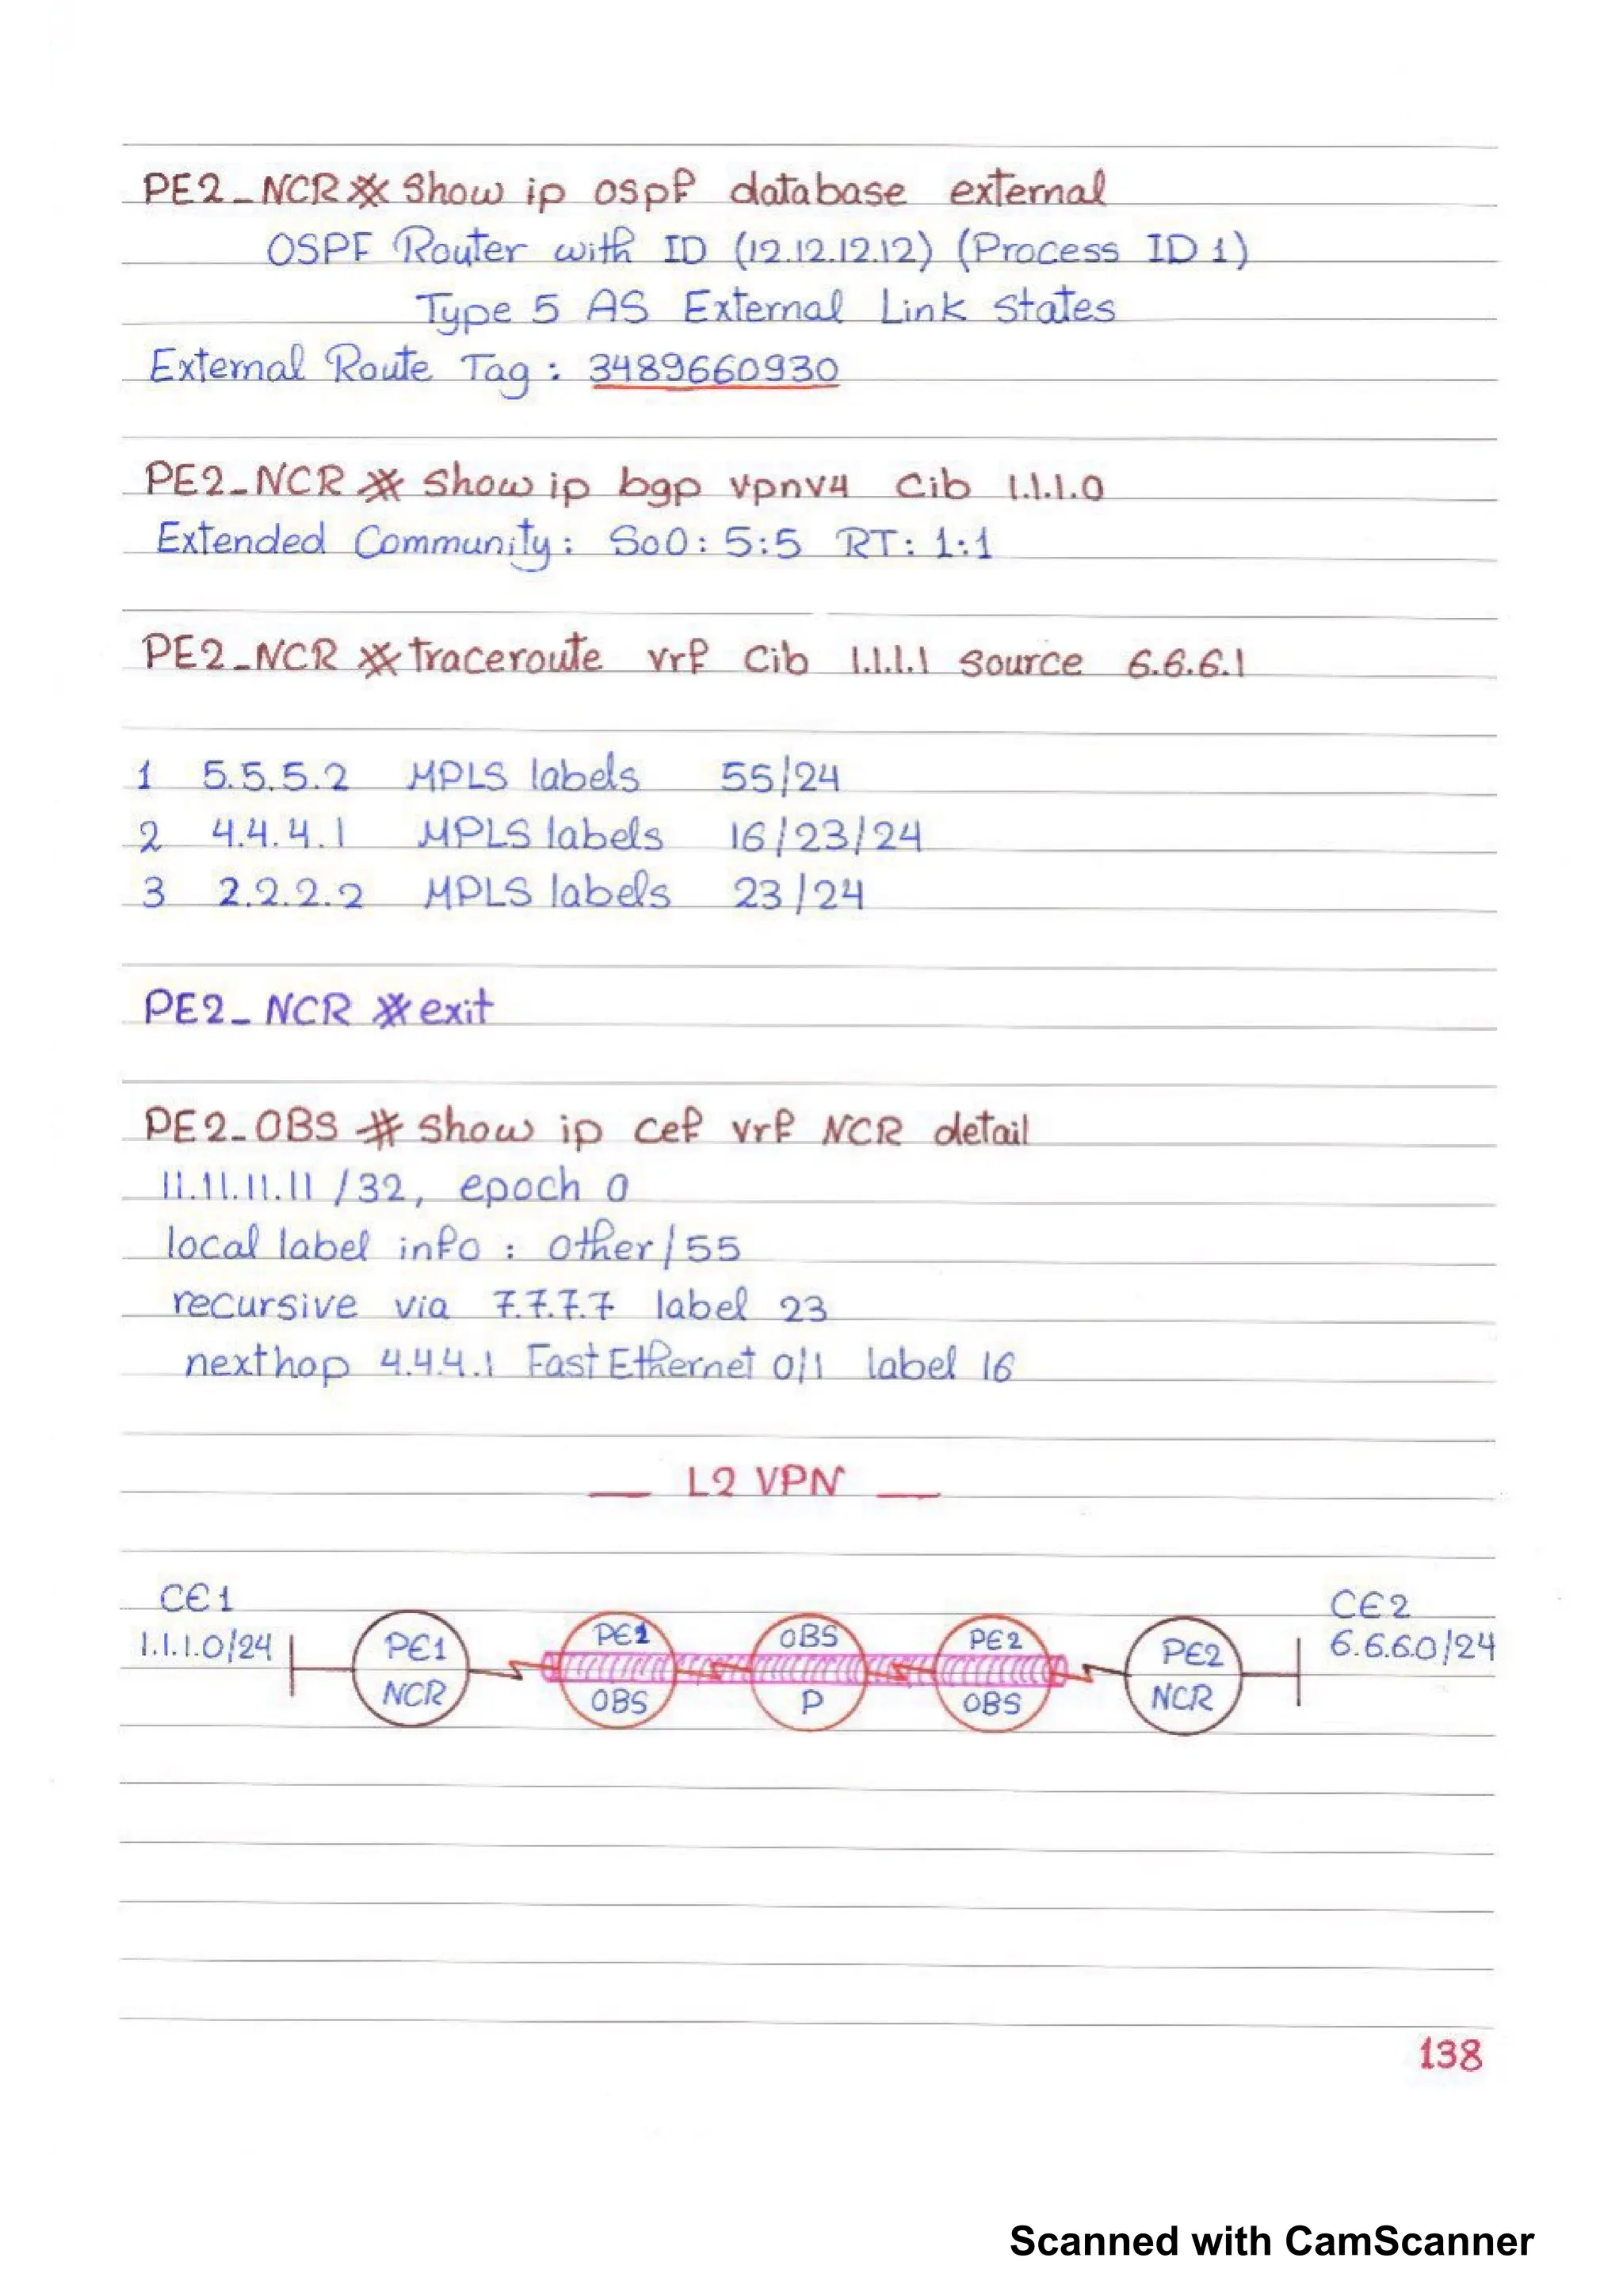 PE2_NCR # Show ip ospf database external
OSPF Router with ID (12.12.12.12) (Process ID 1)
Type 5 AS External Link States
External Route Tag : 3489660930
PE2_NCR # Show ip bgp vpnv4 Cib 1.1.1.0
Extended Community : SoO : 5:5 RT : 1:1
PE2_NCR # traceroute vrf Cib 1.1.1.1 source 6.6.6.1
1 5.5.5.2 MPLS labels 55/24
2 4.4.4.1 MPLS labels 16/23/24
3 2.2.2.2 MPLS labels 23/24
PE2_NCR # exit
PE2_OBS # Show ip cef vrf NCR detail
11.11.11.11 /32, epoch 0
local label info : other/55
recursive via 7.7.7.7 label 23
nexthop 4.4.4.1 FastEthernet 0/1 label 16
L2 VPN
CE1
1.1.1.0/24
PE1
NCR
PE1
OBS
OBS
P
PE2
OBS
PE2
NCR
CE2
6.6.6.0/24
138
Scanned with CamScanner